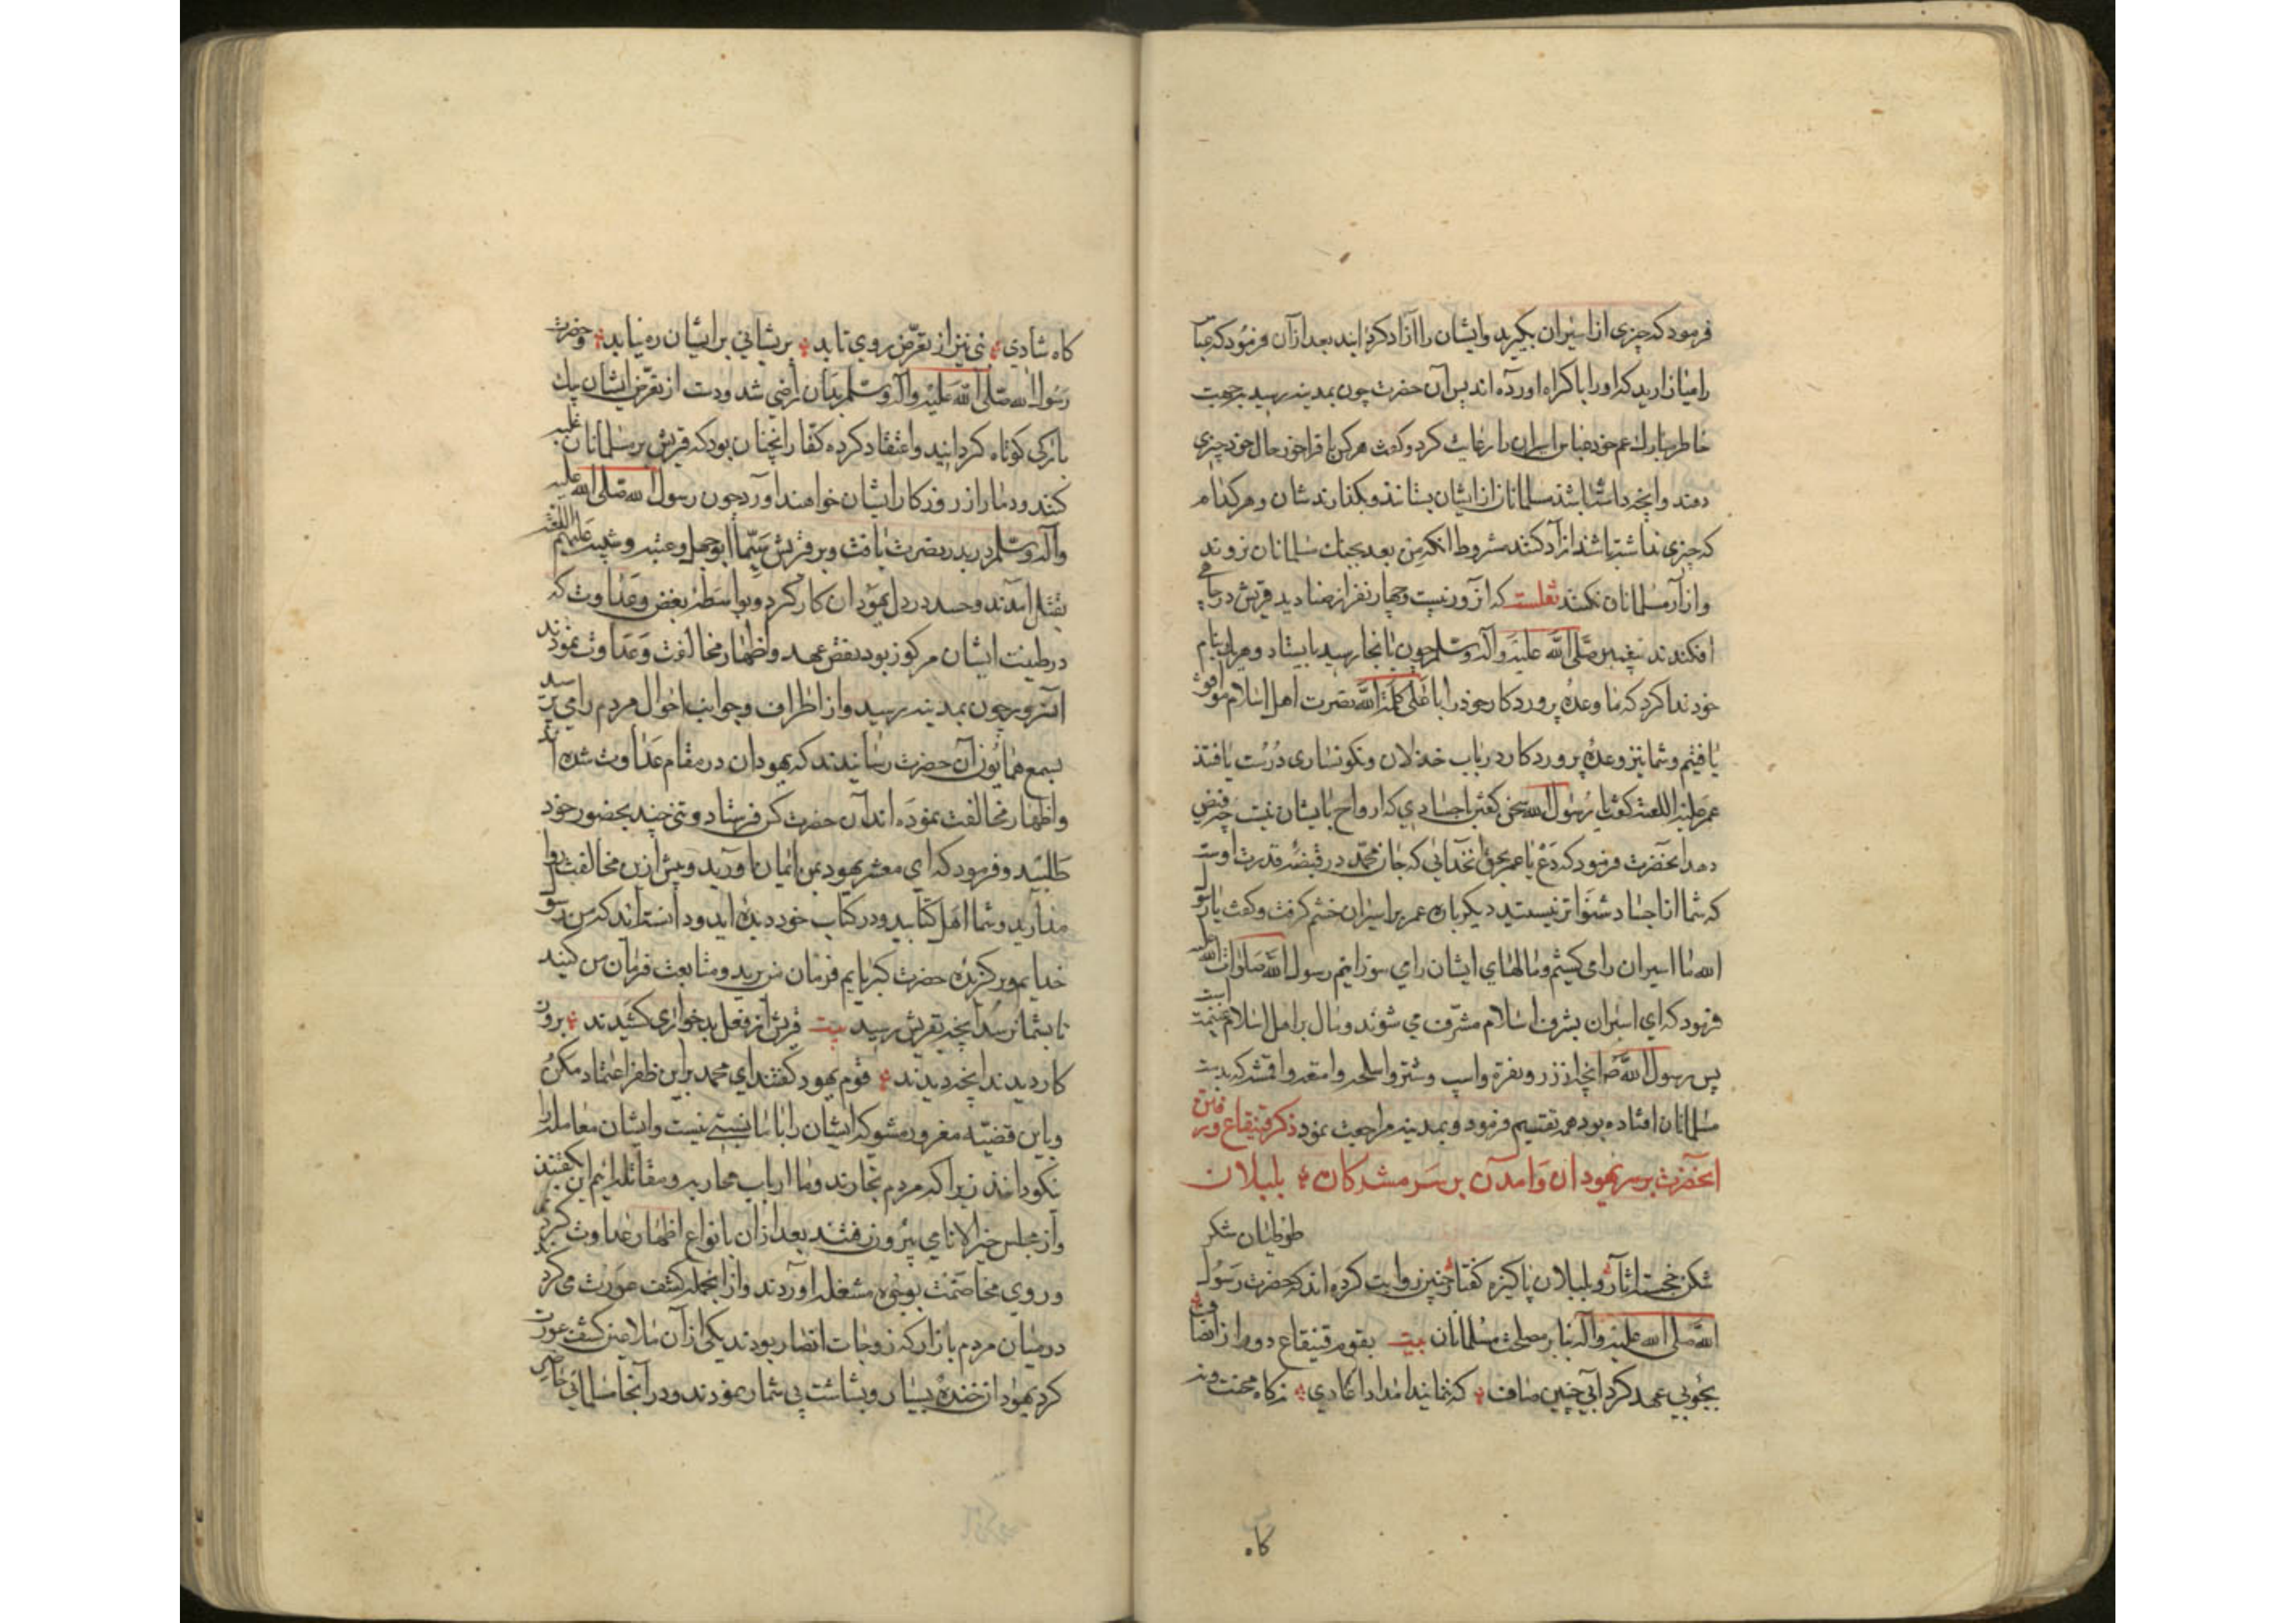 فرمود که چیزی از اسیران بگیرید وایشان را آزاد کرده اید بعد از آن فرمود که عبا
را میازارید که او را باکراه آورده اند پس آن حضرت چون بمدینه رسید بجهت
خاطر مبارک عم خود عباس اسیران را رعایت کرد و گفت هرکس بافراخور حال خود چیزی
دهند وانچه داشته باشند مسلمانان از ایشان بستانند و بگذارند شان وهرکدام
که چیزی نداشته باشند آزاد کنند مشروط آنکه من بعد بجنگ مسلمانان نروند
وازار مسلمانان نکنند نقلست که آن روز بیست وچهار نفر از صنادید قریش در چاهی
افکندند پیغمبر صلی الله علیه وآله وسلم چون بآنجا رسید بایستاد وهریک بنام
خود ندا کرد که ما وعده پروردکار خود را باعلی کلمة الله بنصرت اهل اسلام موافق
یافتیم وشما نیز وعده پروردکار در باب خذلان ونکونساری درست یافتند
عمر علیه اللعنه گفت یا رسول الله سخن گفتن اجسادی که ارواح با ایشان نیست چه فیض
دهد آنحضرت فرمود که دع یا عمر بحق آنخدائی که جان محمد در قبضه قدرت اوست
که شما از اجساد شنواتر نیستید دیکرباره عمر بر اسیران خشم گرفت وگفت یا رسول
الله ما اسیران را می کشیم ومالهای ایشان را می سوزانیم رسول الله صلوات الله علیه
فرمود که ای اسیران بشرف اسلام مشرف می شوند ومال بر اهل اسلام غنیمت است
پس رسول الله ص آنچه از زر ونقره واسپ وشتر واسلحه وامتعه واقمشه که بدست
مسلمانان افتاده بود همه تقسیم فرمود وبمدینه مراجعت نمود ذکر قینقاع ورفتن
آنحضرت بر سر یهودان وآمدن بر سر مشرکان بلبلان
طوطیان شکر
شکن خجسته آثار وبلبلان پاکیزه گفتار چنین روایت کرده اند که حضرت رسول
الله صلی الله علیه وآله بنا بر مصلحت مسلمانان بیت بقوم قینقاع دور از انصاف
بخوبی عهد کرد آبی چنین صاف که ننمایند امداد اعادی زکاه محنت ونه
کاه
کاه شادی نبی نیز از تعرض روی تابد پریشانی بر ایشان ره نیابد وحضرت
رسول الله صلی الله علیه وآله وسلم بدان راضی شد ودست از تعرض ایشان یک
بارکی کوتاه کردانید واعتقاد کرده کفار آنچنان بود که قریش بر مسلمانان غلبه
کنند ودمار از روزکار ایشان خواهند آورد چون رسول الله صلی الله علیه
وآله وسلم در بدر نصرت یافت وبر قریش سیما ابوجهل وعتبه وشیبه علیهم اللعنة
بقتل آمدند وحسد در دل یهودان کار کرد وبواسطه بغض وعداوت که
در طینت ایشان مرکوز بود نقض عهد واظهار مخالفت وعداوت نمودند
آنسرور چون بمدینه رسید واز اطراف وجوانب احوال مردم را می پرسید
بسمع همایون آن حضرت رسانیدند که یهودان در مقام عداوت شده اند
واظهار مخالفت نموده اند آن حضرت کس فرستاد وتنی چند بحضور خود
طلبید وفرمود که ای معشر یهود بمن ایمان آورید وبیش ازین مخالفت روا
مدارید وشما اهل کتابید ودر کتاب خود دیده اید ودانسته اند که من رسول
خدایم وبرکزیده حضرت کبریایم فرمان من برید ومتابعت فرمان من کنید
تا بشما نرسد آنچه بقریش رسید بیت قریش از فعل بد خواری کشیدند بروز
کار دیدند آنچه دیدند قوم یهود گفتند ای محمد بر این ظفر اعتماد مکن
وباین قضیه مغرور مشو که ایشان را با ما نسبتی نیست وایشان معامله را
نکو دانند زیرا که مردم تجارند وما ارباب محاربه ومقاتله ایم این گفتند
واز مجلس خیر الانامی بیرون رفتند بعد از آن بانواع اظهار عداوت کردند
وروی مخاصمت بوی مشغله آوردند واز آنجمله کشف عورت می کردند
در میان مردم بازار که زوجات انصار بودند یکی از آن ملاعین کشف عورت
کرد یهود از خنده بسیار وبشاشت بی شمار نمودند ودر آنجا مسلمانی حاضر